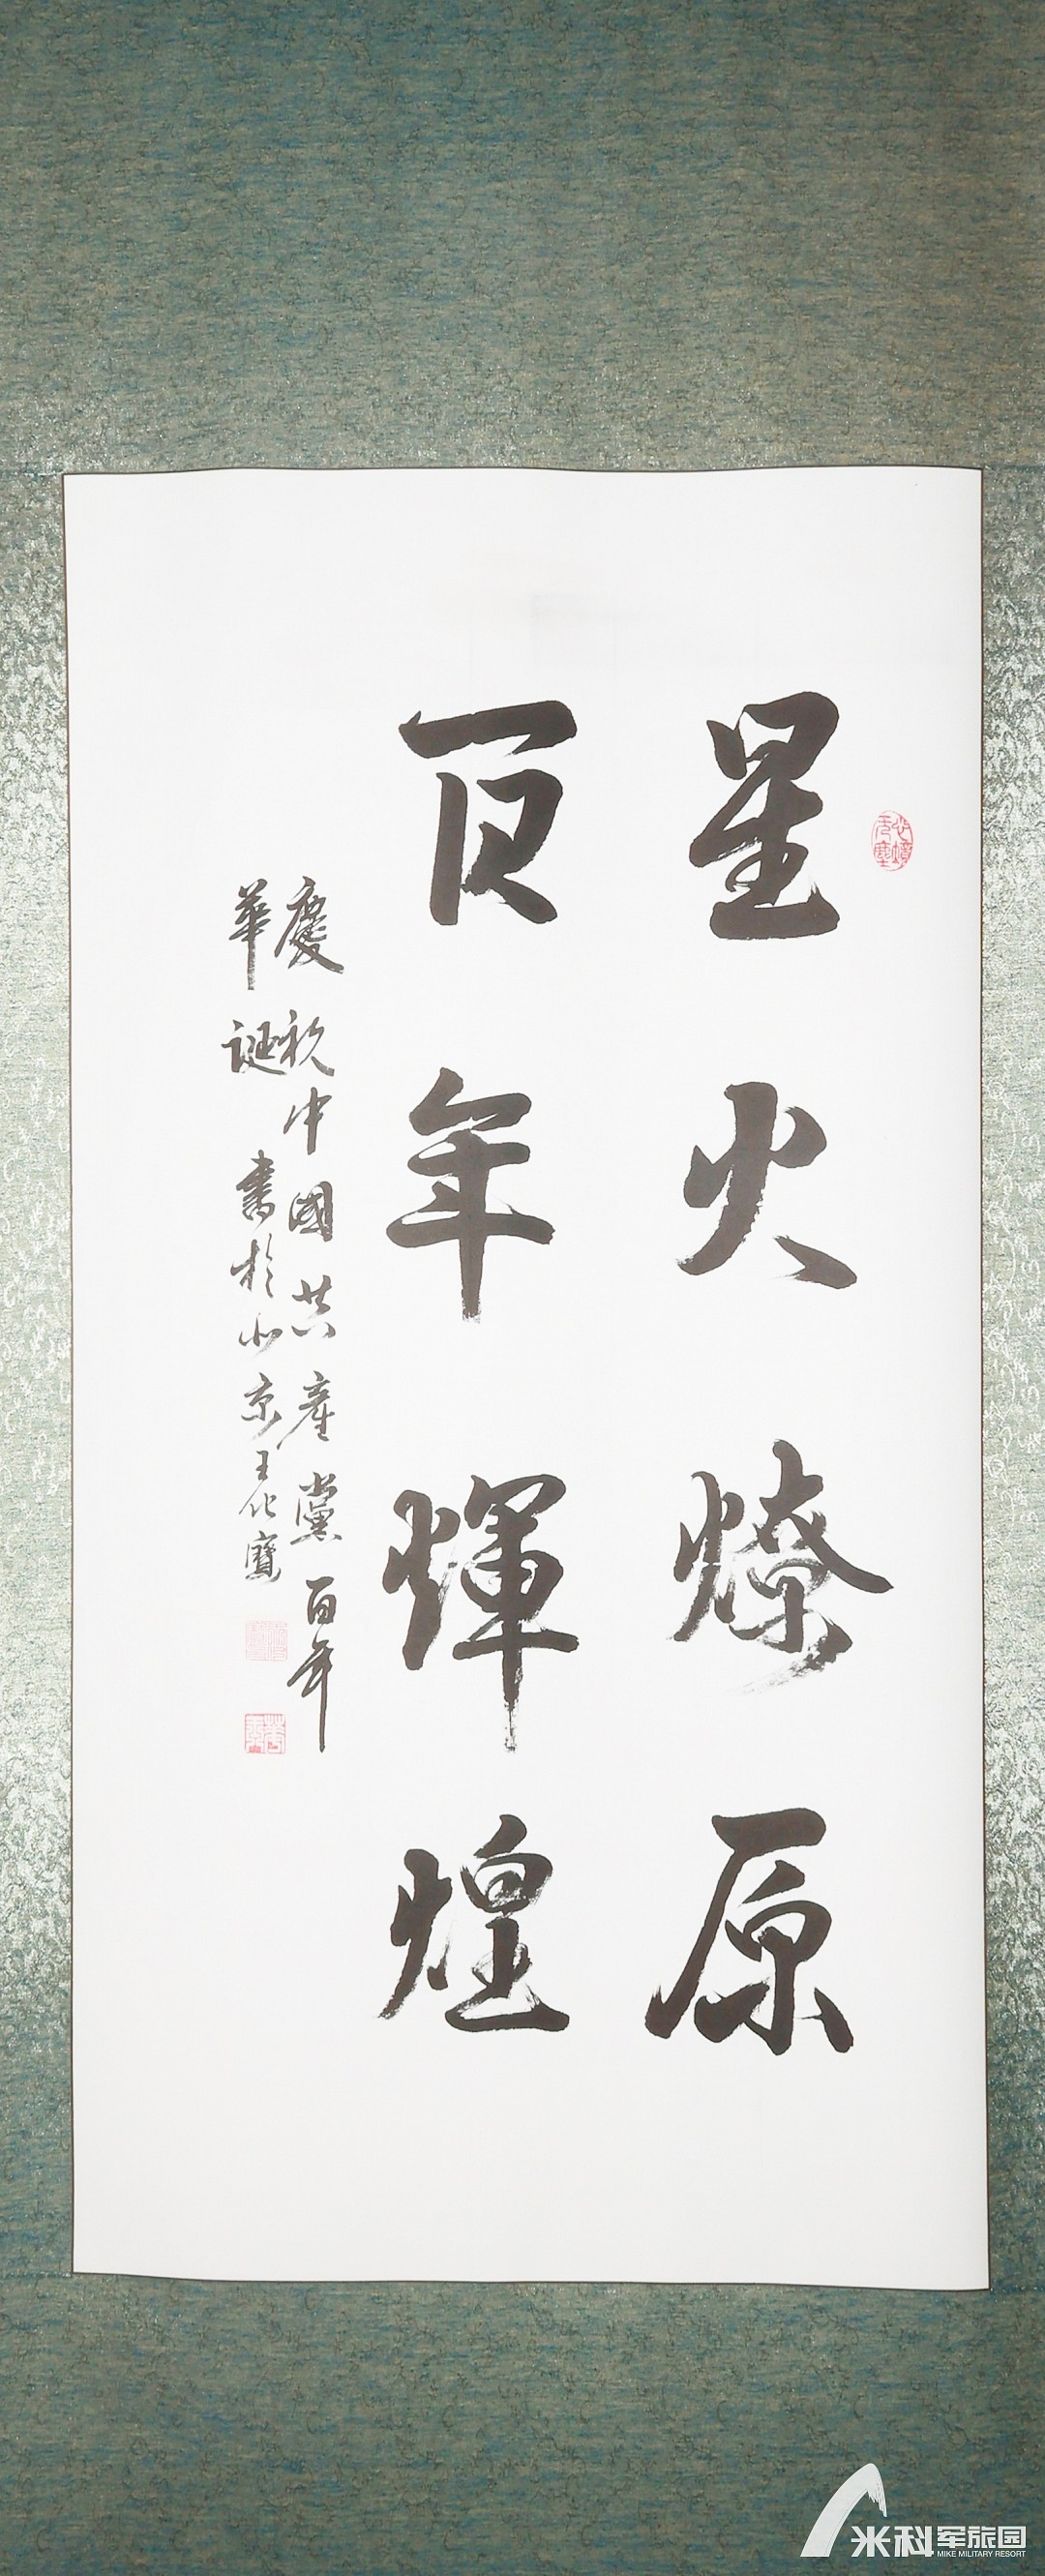 星火燎原
百年輝煌
慶祝中國共產黨百年
華誕 書於北京王化寶
米科军旅园
MIKE MILITARY RESORT